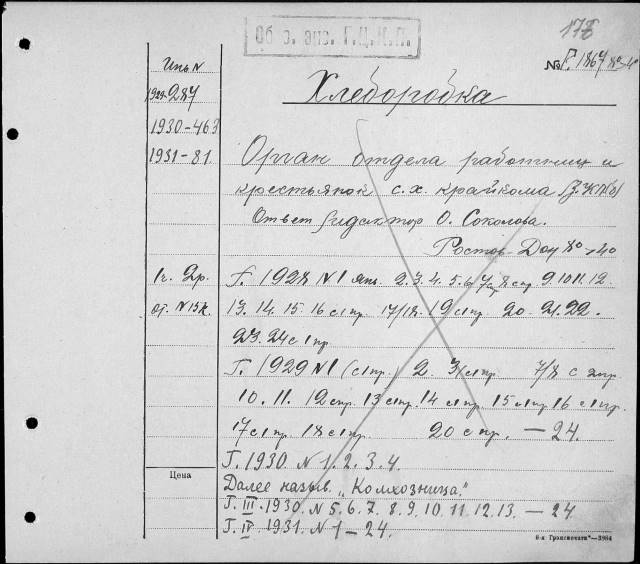 178
Об. з. экз. Г.Ц.К.П.
№ Р. 1867 8°-4°
Инв N
1929-287
1930-463
1931-81
Хлеборобка
Орган отдела работниц и
крестьянок с.х. крайкома ВКП(б)
Ответ редактор О. Соколова.
Ростов Дон 8°-40
1ч. 2р. Г. 1928 N1 янв. 2. 3. 4. 5. 6 7 8 с пр. 9. 10. 11. 12.
от. N 15к. 13. 14. 15. 16 с 1 пр. 17/18. 19 с 1 пр. 20 - 21. 22.
23. 24 с 1 пр.
Г. 1929 N1 (с 1 пр.) 2. 3 с 1 пр. 7/8 с пр.
10. 11. 12 с пр. 13 с 1 пр. 14 с 1 пр. 15 с 1 пр. 16 с 1 пр.
17 с 1 пр. 18 с 1 пр. 20 с пр. — 24.
Г. 1930. N 1. 2. 3. 4.
Цена
Далее назыв. „Колхозница."
Г. III. 1930. N 5. 6. 7. 8. 9. 10. 11. 12. 13. — 24
Г. IV. 1931. N 1 — 24.
6-я Транспечати"—3984